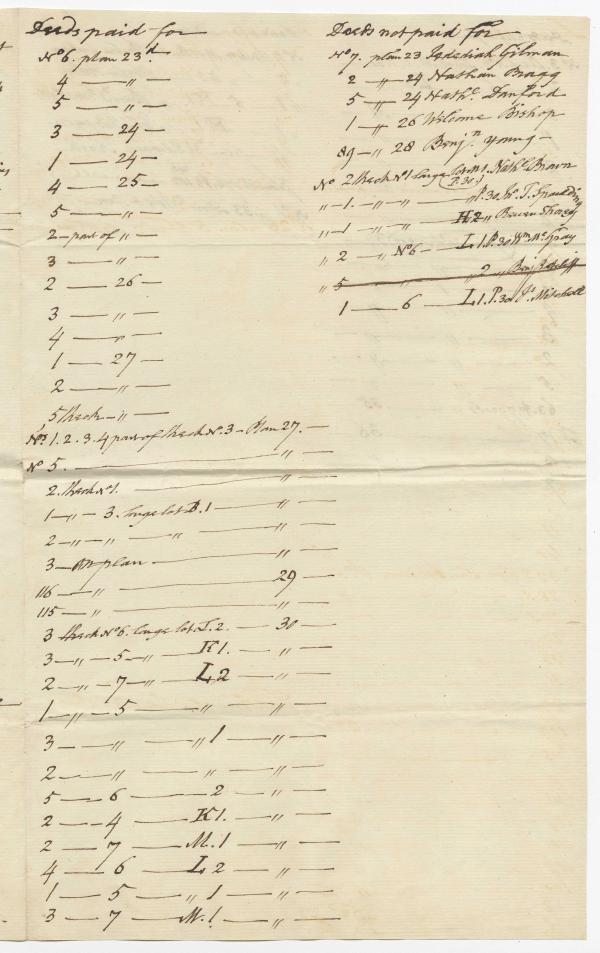 Deeds paid for
No 6. plan 23d.
4 — " —
5 — " —
3 — 24 —
1 — 24 —
4 — 25 —
5 — " —
2 — part of " —
3 — " —
2 — 26 —
3 — " —
4 — " —
1 — 27 —
2 — " —
5 Check — " —
Nos 1. 2. 3. 4 part of Check No. 3 — Plan 27. —
No 5. — " —
2. Check No 1. — " —
1 — " — 3. large lot B. 1 — " —
2 — " — " — " — " —
3 — on plan — " —
116 — " — 29 —
115 — " — " —
3 Check No 6. large lot I. 2. — 30 —
3 — " — 5 — " — K 1. — " —
2 — " — 7 — " — L 2 — " —
1 — " — 5 — " — " —
3 — " — " 1 — " —
2 — " — " — " —
5 — 6 — 2 — " —
2 — 4 — K 1. — " —
2 — 7 — M. 1 — " —
4 — 6 — L 2 — " —
1 — 5 — " 1 — " —
3 — 7 — M. 1 — " —
Deeds not paid for
No 7. plan 23 Jedediah Gilman
2 " 24 Nathan Bragg
5 — " 24 Nathl. Danford
1 — " 26 Welcome Bishop
89 — " 28 Benjn. Young —
No 2 Check No 1 large lot M1. Nathl Brown
(P. 30)
" — 1. — " — " — " P. 30. T. Spaulding
" — 1 — " — " K 2 " Bowen
" 2 — " No 6 — L 1. P. 30 Wm McGray
" 5 — " — " 2 " Benj
1 — 6 L 1. P. 30 Js. Mitchell